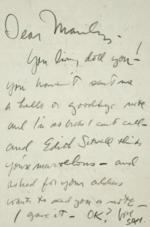 Dear Marilyn
You living doll you!
you haven't sent me
a hello or goodbye note
and I'm so broke I can't call -
and Edith Sitwell thinks
you're marvelous - and
asked for your address
wants to send you a note -
I gave it - OK? love